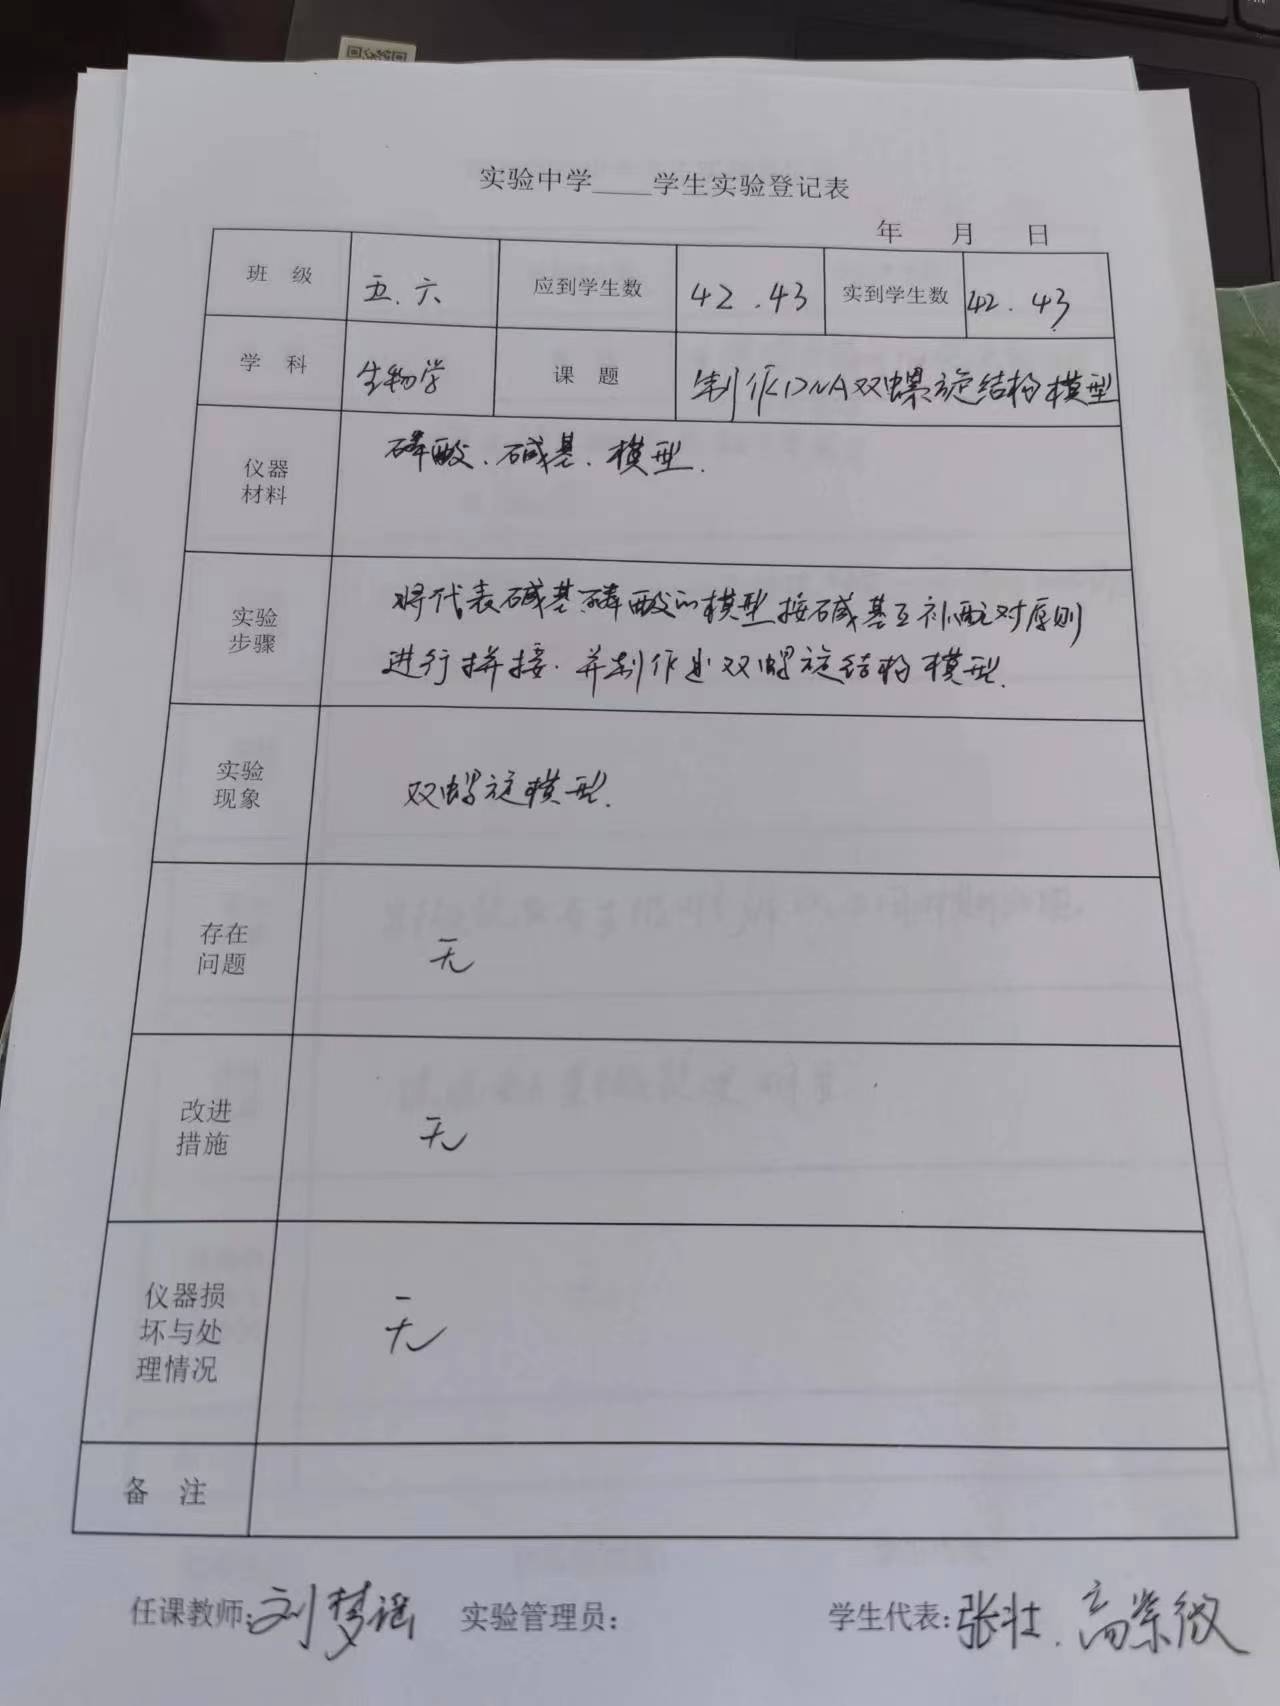 实验中学____学生实验登记表
年 月 日
班 级 五.六 应到学生数 42.43 实到学生数 42.43
学 科 生物学 课 题 制作DNA双螺旋结构模型
仪器
材料
磷酸、碱基、模型.
实验
步骤
将代表碱基磷酸的模型按碱基互补配对原则
进行拼接.并制作出双螺旋结构模型.
实验
现象
双螺旋模型.
存在
问题
无
改进
措施
无
仪器损
坏与处
理情况
无
备 注
任课教师:刘梦谣 实验管理员: 学生代表:张壮.高紫微